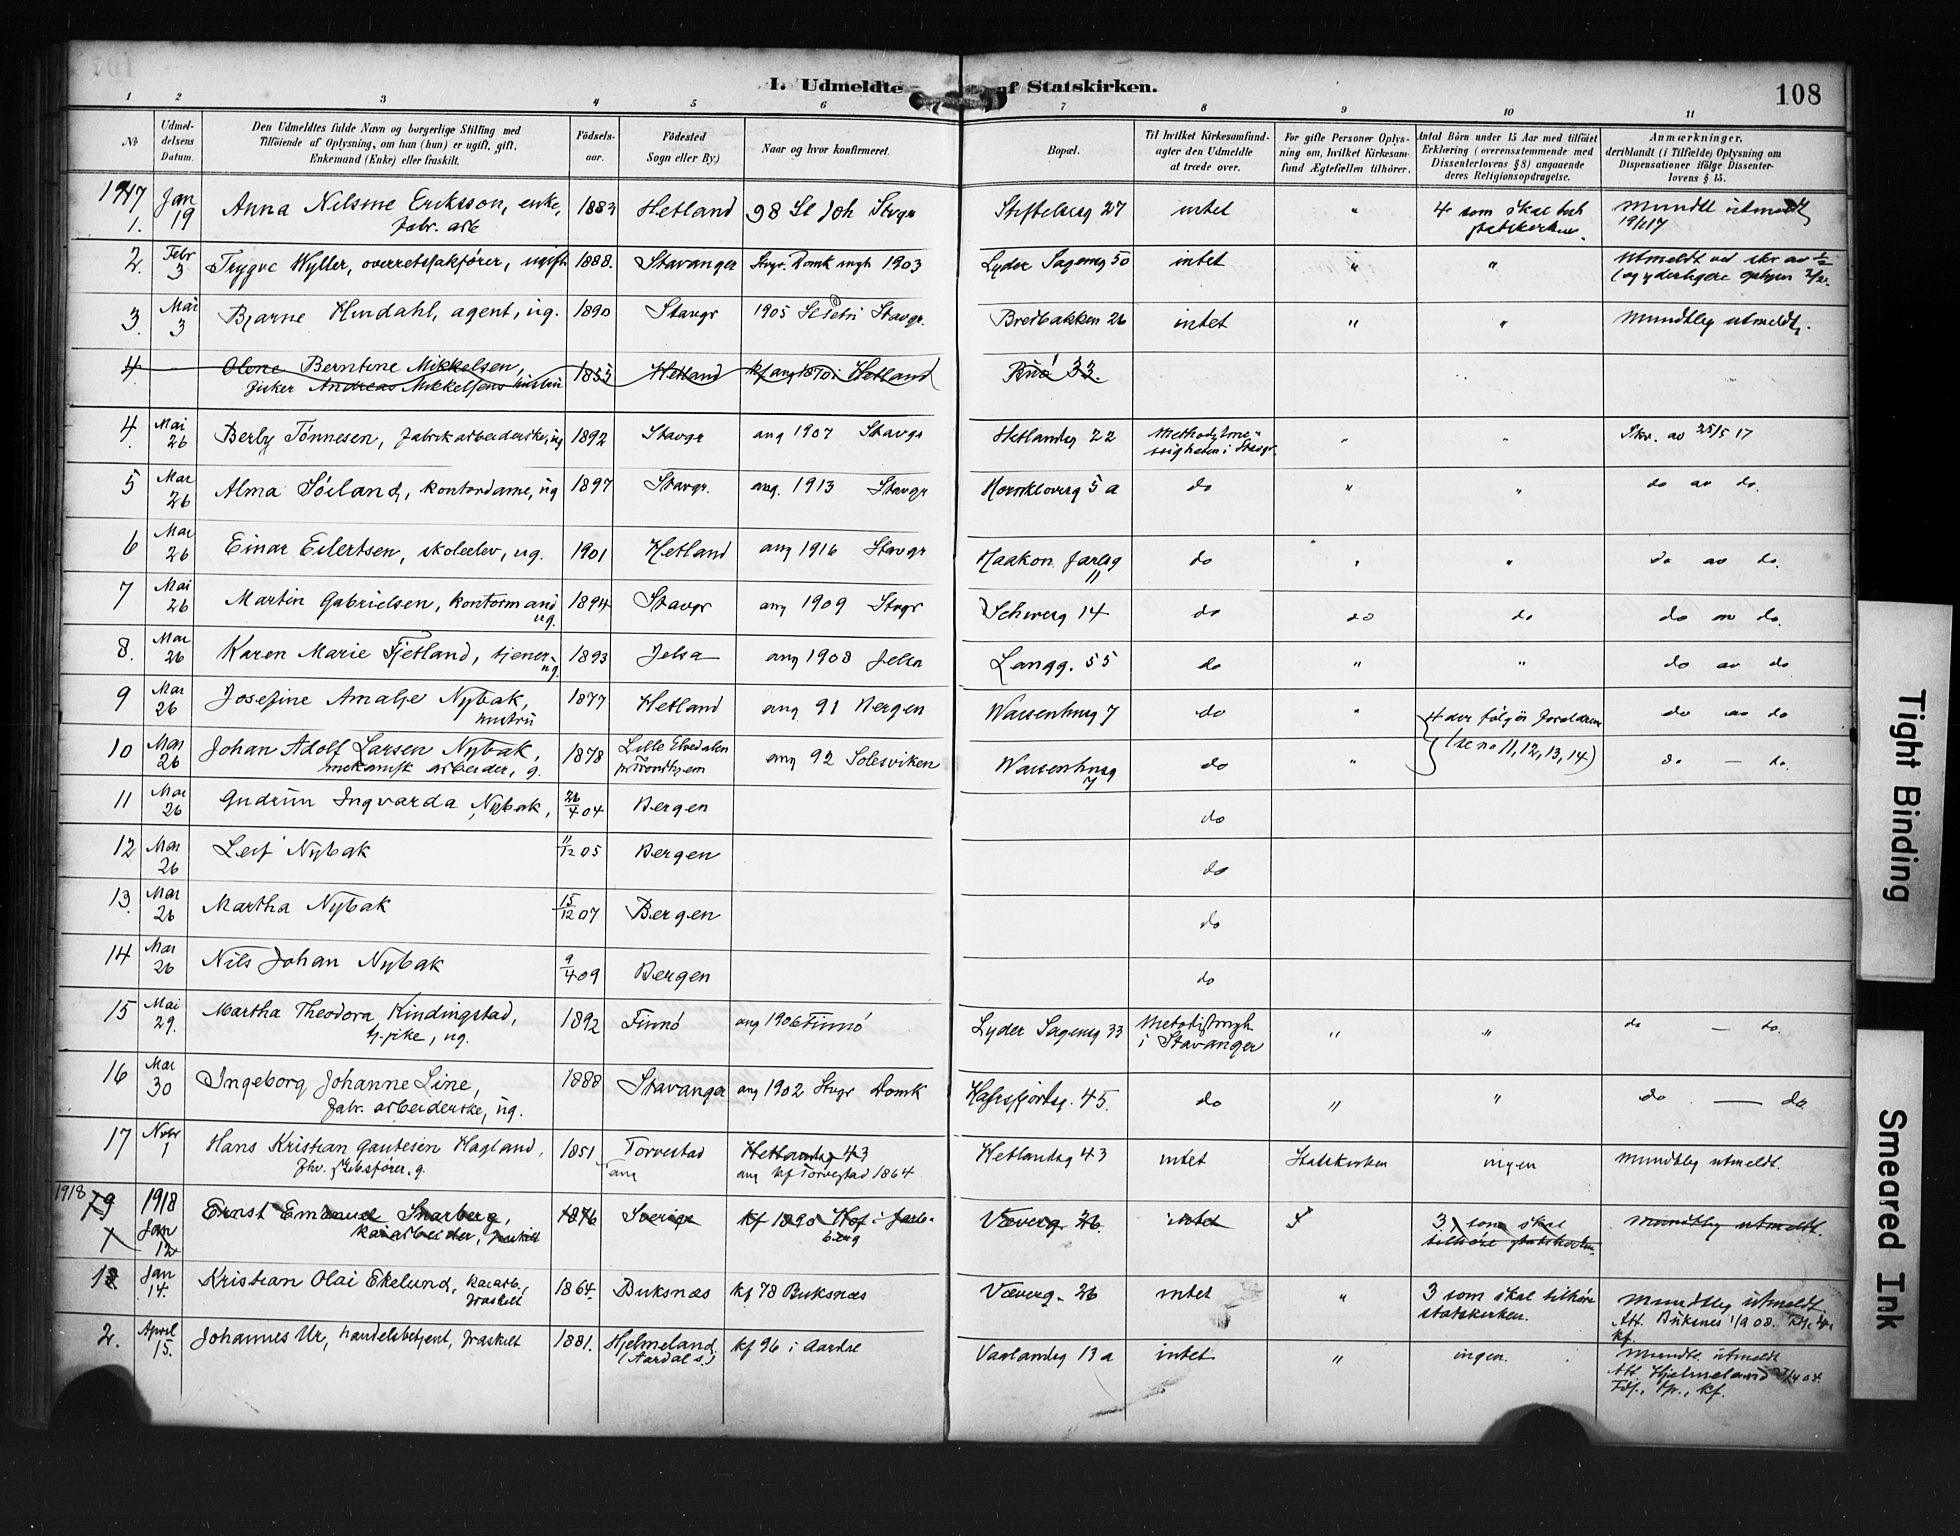 I. Udmeldte af Statskirken.
108
1 2 3 4 5 6 7 8 9 10 11
No
Udmel-
delsens
Datum.
Den Udmeldtes fulde Navn og borgerlige Stilling med
Tilföiende af Oplysning, om han (hun) er ugift, gift,
Enkemand (Enke) eller fraskilt.
Födsels-
aar.
Födested
Sogn eller By)
Naar og hvor konfirmeret.
Bopæl.
Til hvilket Kirkesamfund-
agter den Udmeldte
at træde over.
For gifte Personer Oplys-
ning om, hvilket Kirkesam-
fund Ægtefællen tilhörer.
Antal Börn under 15 Aar med tilföiet
Erklæring (overensstemmende med
Dissenterlovens §8) angaaende
deres Religionsopdragelse.
Anmærkninger,
deriblandt (i Tilfælde) Oplysning om
Dispensationer ifölge Dissenter-
lovens § 15.
1917 Jan Anna Nilsine Eriksson, enke, 1883 Hetland 98 St Joh Stvgr 27 intet " 4 som skal
1. 19 fabr. arb statskirken. 19/1 17
2. Febr 3 Trygve Wyller, overretssakfører, ugift 1888. Stavanger Stvgr. Domk mgh 1903 Lyder Sagensg 50 intet " " Utmeldt ved skr av 1/2
3. 3 Bjarne Hindahl, agent, ug. 1890 Stavgr 1905 St Petri Stavgr. Bredbakken 26 intet " " Mundtlig utmeldt.
4. Olene Berntine Mikkelsen,
fisker Andreas Mikkelsens hustru 1853 Hetland kf Hetland Buø 33.
4. Mai 26 Berly Tønnesen, fabrikarbeiderske, ug 1892 Stavgr aug 1907 Stavgr Hetlandsg 22 i Stavgr. " " Skr. av 25/5 17
5 Mai 26 Alma Søiland, kontordame, ug 1897 Stavgr. aug. 1913 Stavgr 5 a do " " do av do.
6 Mai 26 Einar Eilertsen, skoleelev, ug. 1901 Hetland aug 1916 Stavgr Haakon Jarlsg 11 do " " do av do.
7 Mai 26 Martin Gabrielsen, kontormand ug. 1894 Stavgr aug 1909 Stvgr 14 do do do do av do.
8. Mai 26 Karen Marie Fjetland, tjener ug. 1893 Jelsa aug 1908 Jelsa Langg. 55 do " " do av do
9 Mai 26 Josefine Amalje Nybak,
hustru 1877 Hetland aug 91 Bergen 7 do " 4 der følger foreldrene do av do
10 Mai 26 Johan Adolf Larsen Nybak,
mekanisk arbeider, g. 1878 Lille Elvedalen aug 92 Solesviken 7 do " (se no 11, 12, 13, 14) do — do.
11 Mai 26 Gudrun Ingvarda Nybak, 26/4 04 Bergen do
12 Mai 26 Leif Nybak 11/12 05 Bergen do
13. Mai 26 Martha Nybak 15/12 07 Bergen do
14 Mai 26 Nils Johan Nybak 9/4 09 Bergen do
15 Mai 29. Martha Theodora Kindingstad,
tj. pike, ug. 1892 Finnø aug 1906 Finnø Lyder Sagensg 33 i Stavanger " " do — do.
16 Mai 30 Ingeborg Johanne Line,
fabr. arbeiderske, ug. 1888 Stavanger aug 1902 Stvgr Domk Hafrsfjordsg. 45. do " " do — do
17 Novbr 1 Hans Kristian Gautesen Hagland,
fhv. skibsfører, g. 1851 Torvestad Hetlandsg 43 Hetlandsg 43 intet Statskirken ingen Mundtlig utmeldt.
aug kf Torvestad 1864
1918 1918
1 Jan 12 Ernst Emanuel Snarberg,
kaiarbeider, fraskilt 1876 Sverige kf 1890 Hof i Jarls-
berg Væverg. 26. intet 3 som skal
tilhøre statskirken. Mundtlig utmeldt.
1 Jan 14. Kristian Olai Ekelund, kaiarb.,
fraskilt 1864. Buksnæs kf 78 Buksnæs Væverg. 26 intet " 3 som skal tilhøre
statskirken. Mundtlig utmeldt.
Att. Buksnes
kf.
2. April 15. Johannes Ur, handelsbetjent, fraskilt 1881. Hjelmeland
(Aardal s.) kf 96 i Aardal Vaalandsg 13 a intet " ingen. Mundtl. utmeldt
Att. Hjelmeland
kf.
Tight Binding
Smeared Ink